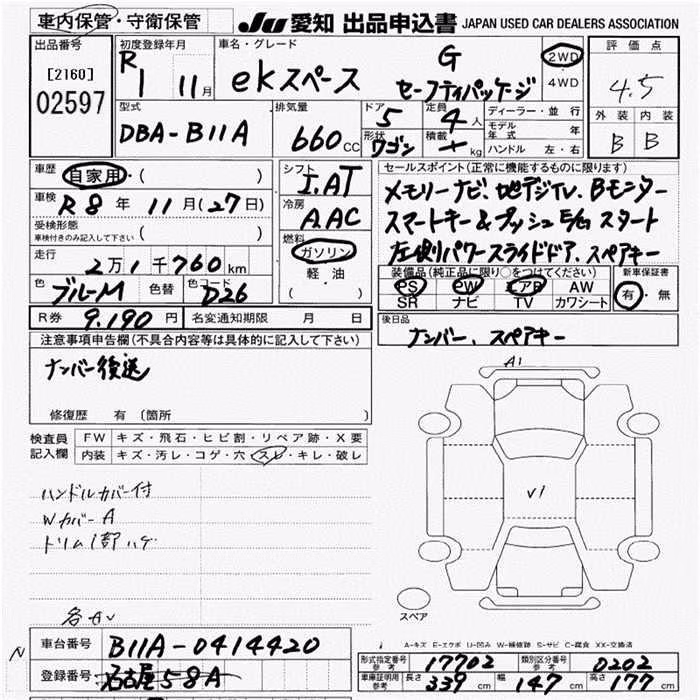 車内保管・守衛保管
JU 愛知 出品申込書 JAPAN USED CAR DEALERS ASSOCIATION
出品番号 初度登録年月 車名・グレード 評価点
[2160] R1 11月 ekスペース G セーフティパッケージ 2WD ・ 4WD 4.5
02597
型式 排気量 ドア 定員 ディーラー・並行 外装 内装
DBA-B11A 660cc 5 4人 モデル年式 年 B B
形状 ワゴン 積載 kg ハンドル 左・右
車歴 自家用・( ) シフト I.AT セールスポイント(正常に機能するものに限ります)
車検 R8年 11月(27日) 冷房 A.AC メモリーナビ、地デジTV、Bモニター
受検形態 ( ) スマートキー&プッシュE/Gスタート
車検付きのみ記入して下さい
燃料 ガソリン 左側パワースライドドア、スペアキー
走行 2万1千760km 軽油 ( ) 装備品(純正品に限り○をつけてください) 新車保証書
PS PW エアB AW 有・無
色 ブルーM 色替 色コード D26 SR ナビ TV カワシート
R券 9,190円 名変通知期限 月 日 後日品
ナンバー、スペアキー
注意事項申告欄(不具合内容等は具体的に記入して下さい)
ナンバー後送 A1
修復歴 有 (箇所 )
検査員記入欄 FW キズ・飛石・ヒビ割・リペア跡・X要
内装 キズ・汚レ・コゲ・穴・スレ・キレ・破レ
ハンドルカバー付 V1
WカバーA
トリム1部ハゲ
スペア
各AV
A-キズ E-エクボ U-凹み W-補修跡 S-サビ C-腐食 XX-交換済
N 車台番号 B11A-0414420 形式指定番号 参考 17702 類別区分番号 参考 0202
登録番号 名古屋58A 車庫証明用 参考 長さ 339cm 幅 147cm 高さ 177cm